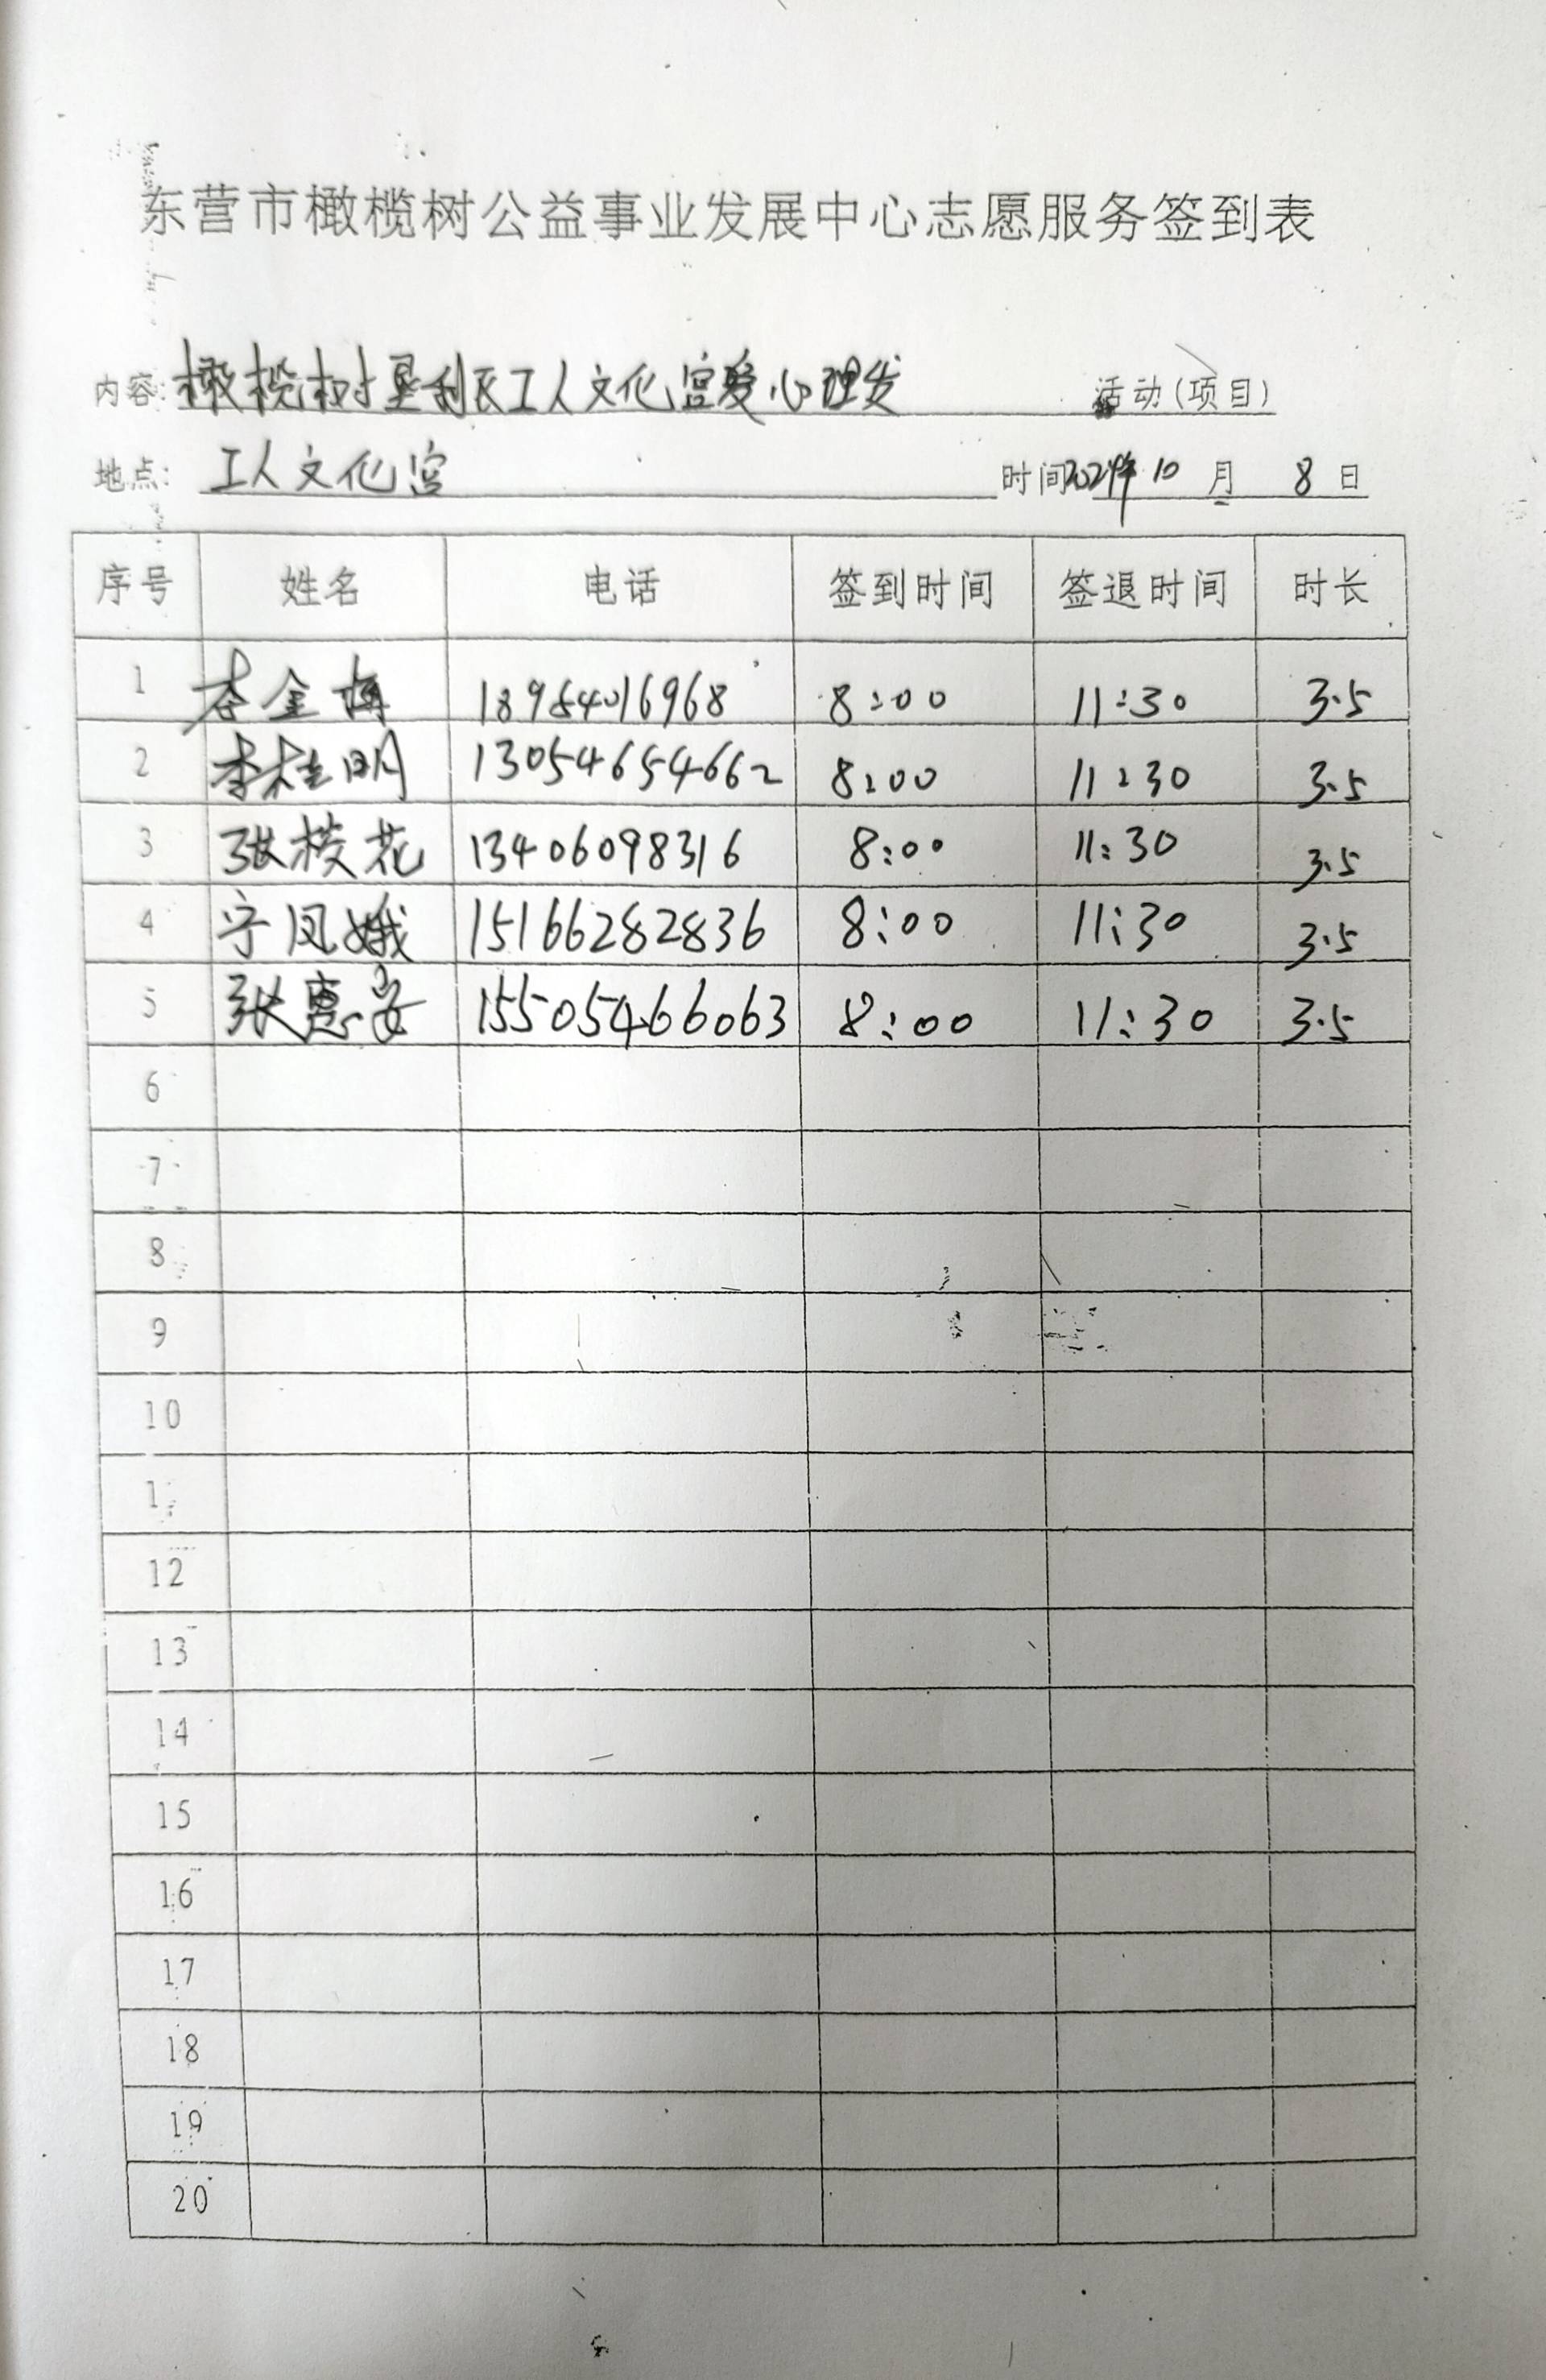 东营市橄榄树公益事业发展中心志愿服务签到表
内容:橄榄树垦利区工人文化宫爱心理发 活动(项目)
地点: 工人文化宫 时间2024年10月 8日
序号 姓名 电话 签到时间 签退时间 时长
1 李金梅 18954016968 8:00 11:30 3.5
2 李桂明 13054654662 8:00 11:30 3.5
3 张 花 13406098316 8:00 11:30 3.5
4 宁凤娥 15166282836 8:00 11:30 3.5
5 张惠 15505466063 8:00 11:30 3.5
6
7
8
9
10
1
12
13
14
15
16
17
18
19
20